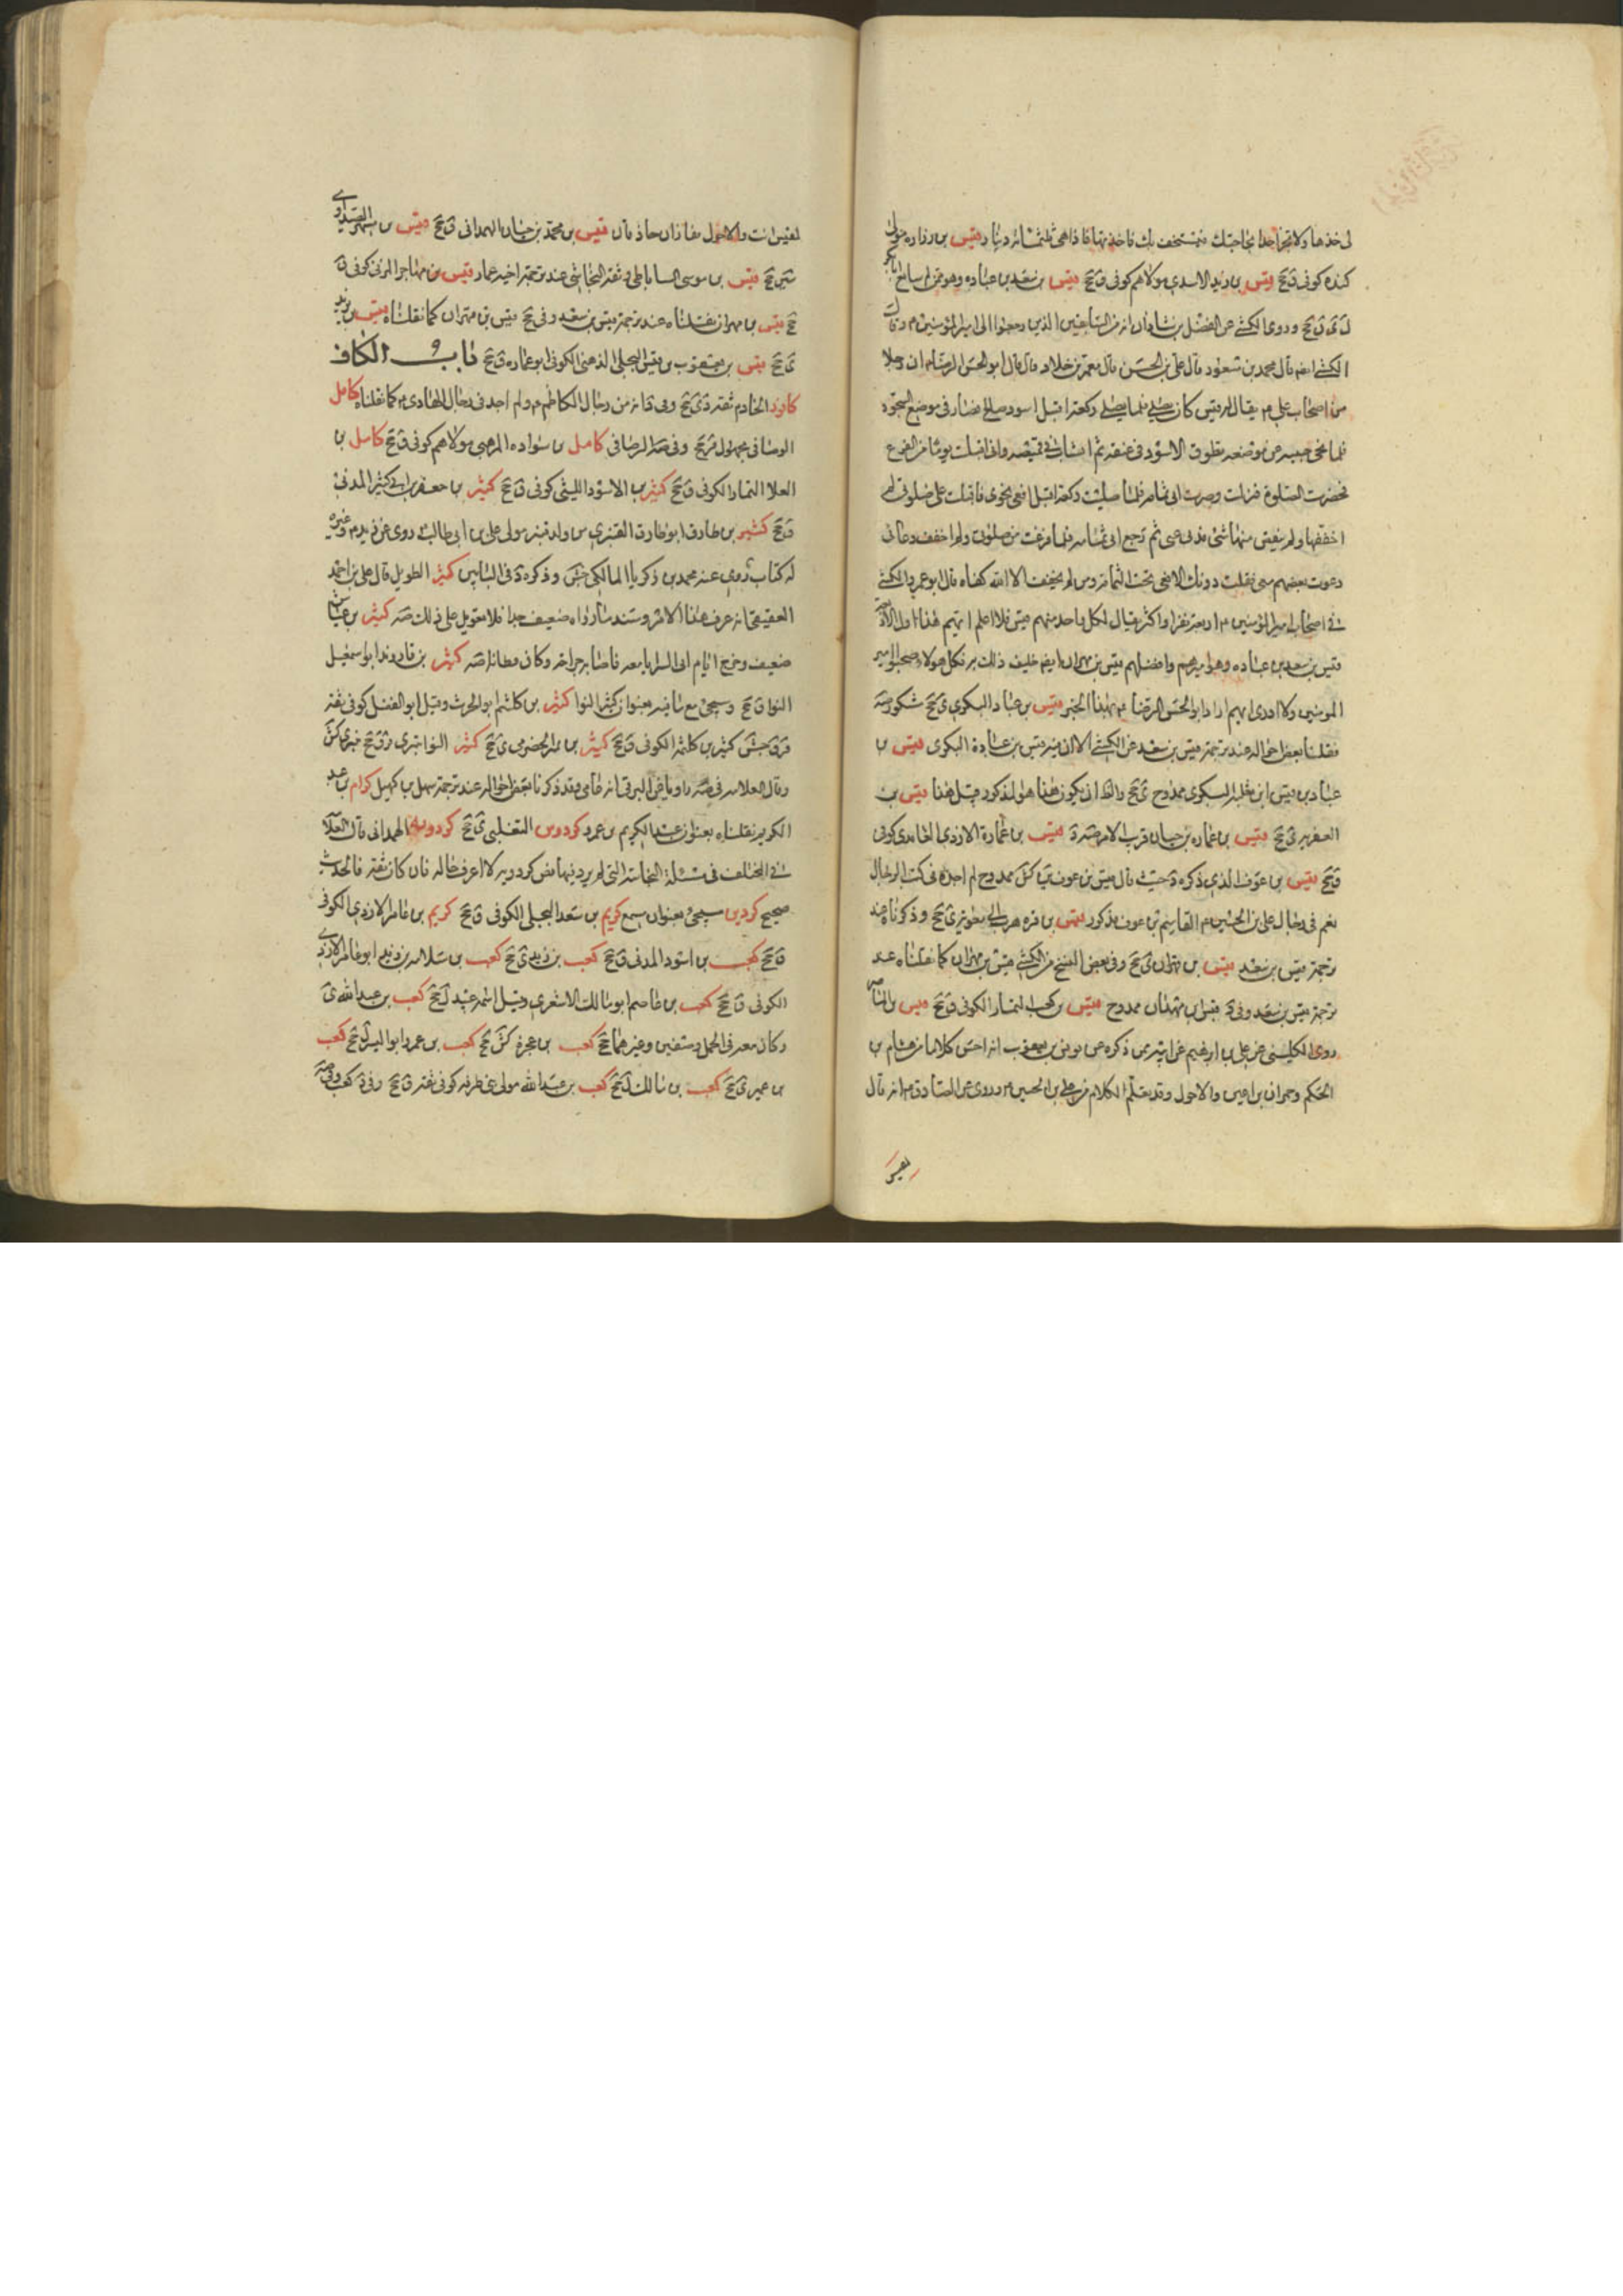 لى خذها ولا تخبر احدا بحاجتك فيستخف بك فاخذتها فاذا هى ثلثمائة دينار قيس بن زراره مولى
كنده كوفى ق جح قيس بن زيد الاسدى مولاهم كوفى ق جح قيس بن سعد بن عباده وهو ممن لم يبايع ابا بكر
ل ى ن جح وروى الكشى عن الفضل بن شاذان انه من السابقين الذين رجعوا الى امير المؤمنين م وقال
الكشى ايضا قال محمد بن مسعود قال على بن الحسن قال معمر بن خلاد قال قال ابو الحسن الرضا م ان رجلا
من اصحاب على م يقال له قيس كان يصلى فلما يصلى ركعة اقبل اسود سالخ فصار فى موضع السجود
فلما نحى جبينه عن موضعه تطوق الاسود فى عنقه ثم انساب فى قميصه وانى اقبلت يوما من الفرع
فحضرت الصلوة فنزلت وصرت الى ثمامه فلما صليت ركعة اقبل افعى نحوى فاقبلت على صلوتى لم
اخففها ولم ينقص منها شئ فدنى منى ثم رجع الى ثمامه فلما فرغت من صلوتى ولم اخفف دعائى
دعوت بعضهم معى فقلت دونك الافعى تحت الثمامه ومن لم يخف الا الله كفاه قال ابو عمرو الكشى
فى اصحاب امير المؤمنين م اربعة نفر او اكثر يقال لكل واحد منهم قيس فلا اعلم ايهم هذا اول الاربعة
قيس بن سعد بن عباده وهو اميرهم وافضلهم قيس بن مهران ايضا خليف ذلك به فكل هولاء صحبوا امير
المومنين ولا ادرى ايهم اراد ابو الحسن الرضا م بهذا الخبر قيس بن عباد البكرى ى جح شكور صه
فقلنا بعض احواله عند ترجمة قيس بن سعد عن الكشى الا ان فيه قيس بن عبادة البكرى قيس بن
عباد بن قيس ابن ثعلبه البكرى ممدوح ى جح والظ ان يكون هذا هو المذكور قبل هذا قيس بن
ى جح قيس بن عماره بن حيان قريب الامر صه د قيس بن عمارة الازدى الغامدى كوفى
ق جح قيس بن عوف الذى ذكره د حيث قال قيس بن عوف ين كش ممدوح لم اجده فى كتب الرجال
نعم فى رجال على بن الحسين م القاسم بن عوف مذكور قيس بن قره هرب الى معويه ى جح وذكرناه عند
ترجمة قيس بن سعد قيس بن قهران ى جح وفى بعض النسخ من الكشى قيس بن مهران كما نقلناه عند
ترجمة قيس بن سعد وفى د قيس ابن قهدان ممدوح قيس بن كعب التمار الكوفى ق جح قيس بن الماصر
روى الكلينى عن على بن ابرهيم عن ابيه عمن ذكره عن يونس بن يعقوب انه احسن كلاما من هشام بن
الحكم وحمران بن اعين والاحول وقد تعلم الكلام من على بن الحسين م وروى عن الصادق م انه قال
لقيس
لقيس انت والاحول قفازان حاذقان قيس بن محمد بن حيان الهمدانى ق جح قيس بن مسهر الصيداوى
سين جح قيس بن موسى الساباطى وثقه النجاشى عند ترجمة اخيه عمار قيس بن مهاجر المزنى كوفى ق
جح قيس بن مهران نقلناه عند ترجمة قيس بن سعد وفى جح قيس بن قهران كما نقلناه قيس بن يزيد
جح قيس بن يعقوب بن قيس البجلى الدهنى الكوفى ابو عماره ق جح باب الكاف
كافور الخادم ثقه دى جح وفى د انه من رجال الكاظم م ولم اجد فى رجال الهادى م كما نقلناه كامل
الرصافى مجهول قر جح وفى صه الرصافى كامل بن سواده المرهبى مولاهم كوفى ق جح كامل بن
العلا التمار الكوفى ق جح كثير بن الاسود الليثى كوفى ق جح كثير بن جعفر بن ابى كثير المدنى
ق جح كثير بن طارق ابو طارق القنبرى من ولد قنبر مولى على بن ابى طالب م روى عن زيد م وغيره
له كتاب روى عنه محمد بن زكريا المالكى جش وذكره د فى البابين كثير الطويل قال على بن احمد
العقيقى انه عرف هذا الامر وسند ما رواه ضعيف جدا فلا تعويل على ذلك صه كثير بن عياش
ضعيف وخرج ايام ابى السرايا معه فاصابه جراحة وكان قطانا صه كثير بن قاروندا ابو اسمعيل
النوا ق جح وسيجئ مع ما فيه بعنوان كثير النوا كثير بن كلثم ابو الحرث وقيل ابو الفضل كوفى ثقه
قر ق جش كثير بن كلثمه الكوفى ق جح كثير بن مره الحضرمى ى جح كثير النوا بترى قر ق جح بترى كش
وقال العلامه فى صه وقد ذكرنا بعض احواله عند ترجمة سهل بن كهيل كرام بن عبد
الكريم نقلناه بعنوان عبد الكريم بن عمرو كردوس التغلبى ى جح كردويه الهمدانى قال العلامه
فى المختلف فى مسئلة النجاسة التى لم يرد فيها نص كردويه لا اعرف حاله فان كان ثقة فالحديث
صحيح كردين سيجئ بعنوان مسمع كريم بن سعد البجلى الكوفى ق جح كريم بن عامر الازدى الكوفى
ق جح كعب بن اسود المدنى ق جح كعب بن زيد ى جح كعب بن سلامه بن زيد ابو عامر الازدى
الكوفى ق جح كعب بن عاصم ابو مالك الاشعرى وقيل اسمه عبيد ل جح كعب بن عبد الله ى
وكان معه فى الجمل وصفين وغيرهما جح كعب بن عجرة كش جح كعب بن عمرو ابو اليسر ل جح كعب
بن عمير ى جح كعب بن مالك ل جح كعب بن عبد الله مولى بنى طرفه كوفى ثقه ق جح وفى د كعب وفى صه